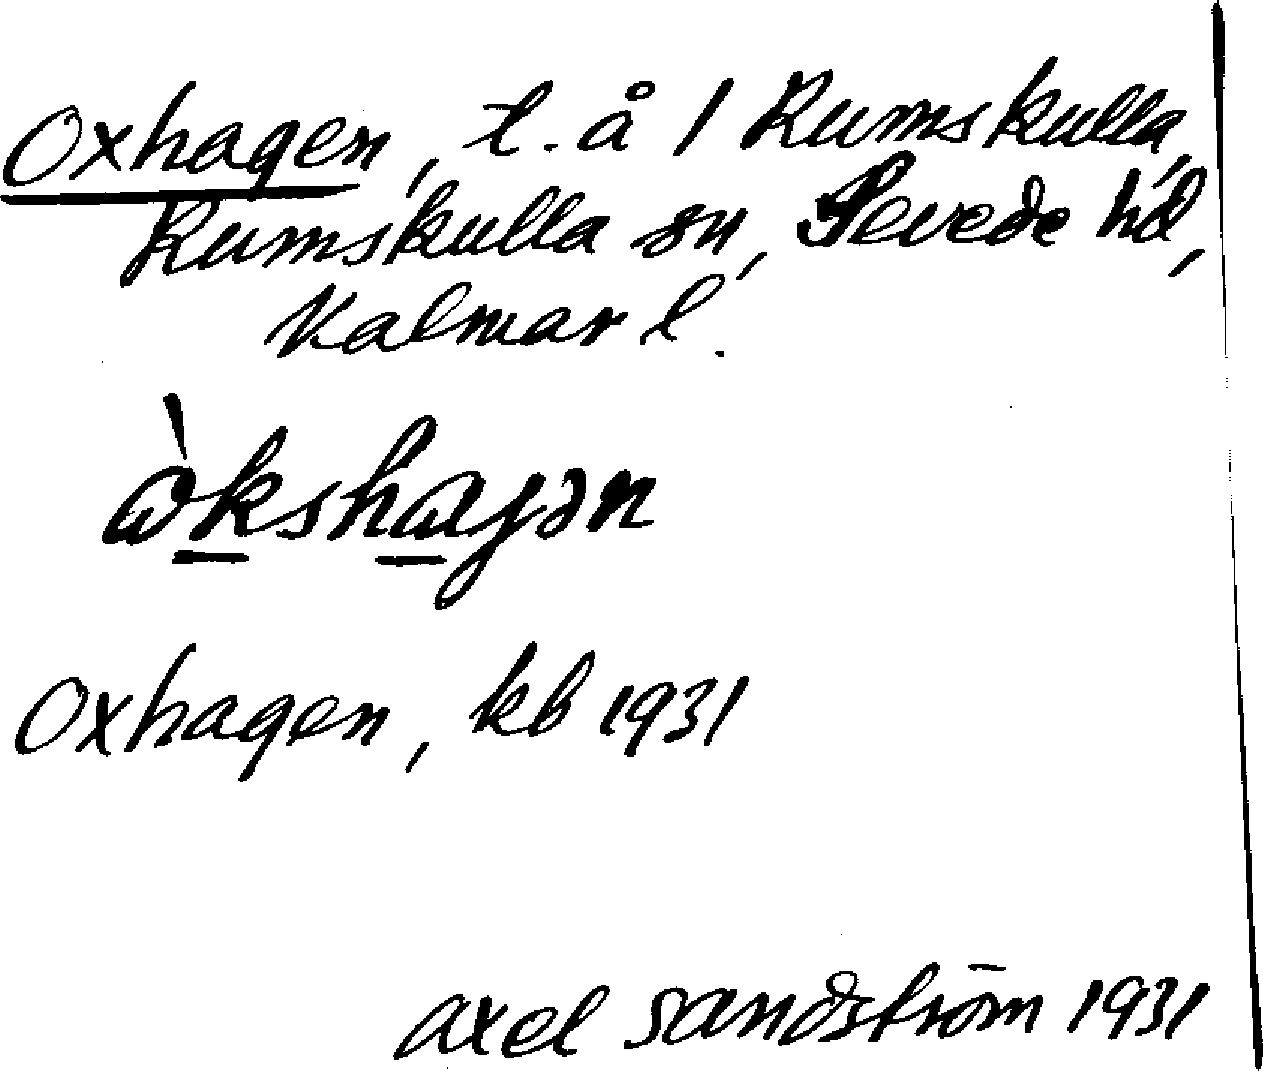 Oxhagen, t. å / Rumskulla,
Rumskulla sn, Sevede hd,
Kalmar l.
ὼkshaγən
Oxhagen, kb 1931
Axel Sandström 1931